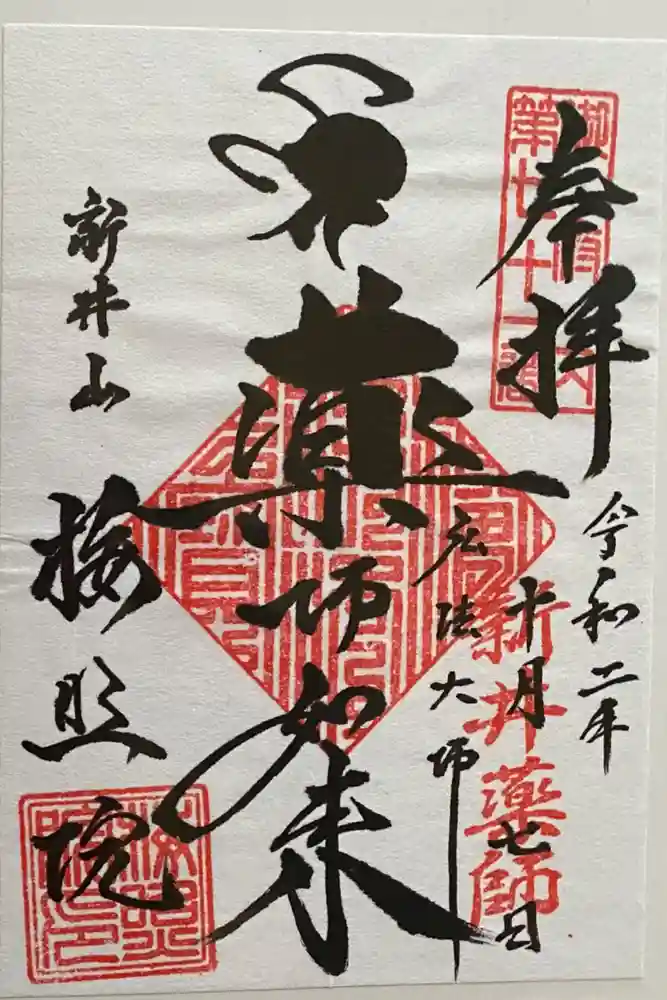 奉拝
第七十一
令和二年
十月七日
新井薬師
弘法大師
薬師如来
新井山
梅照院